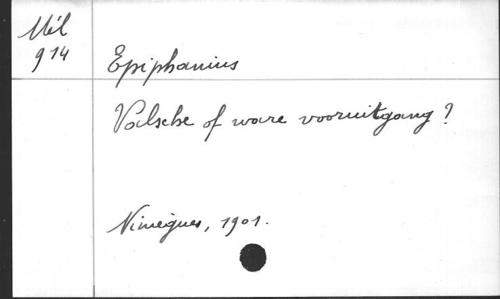 Mél
914
Epiphanius
Valsche of ware vooruitgang?
Nimègues, 1901.